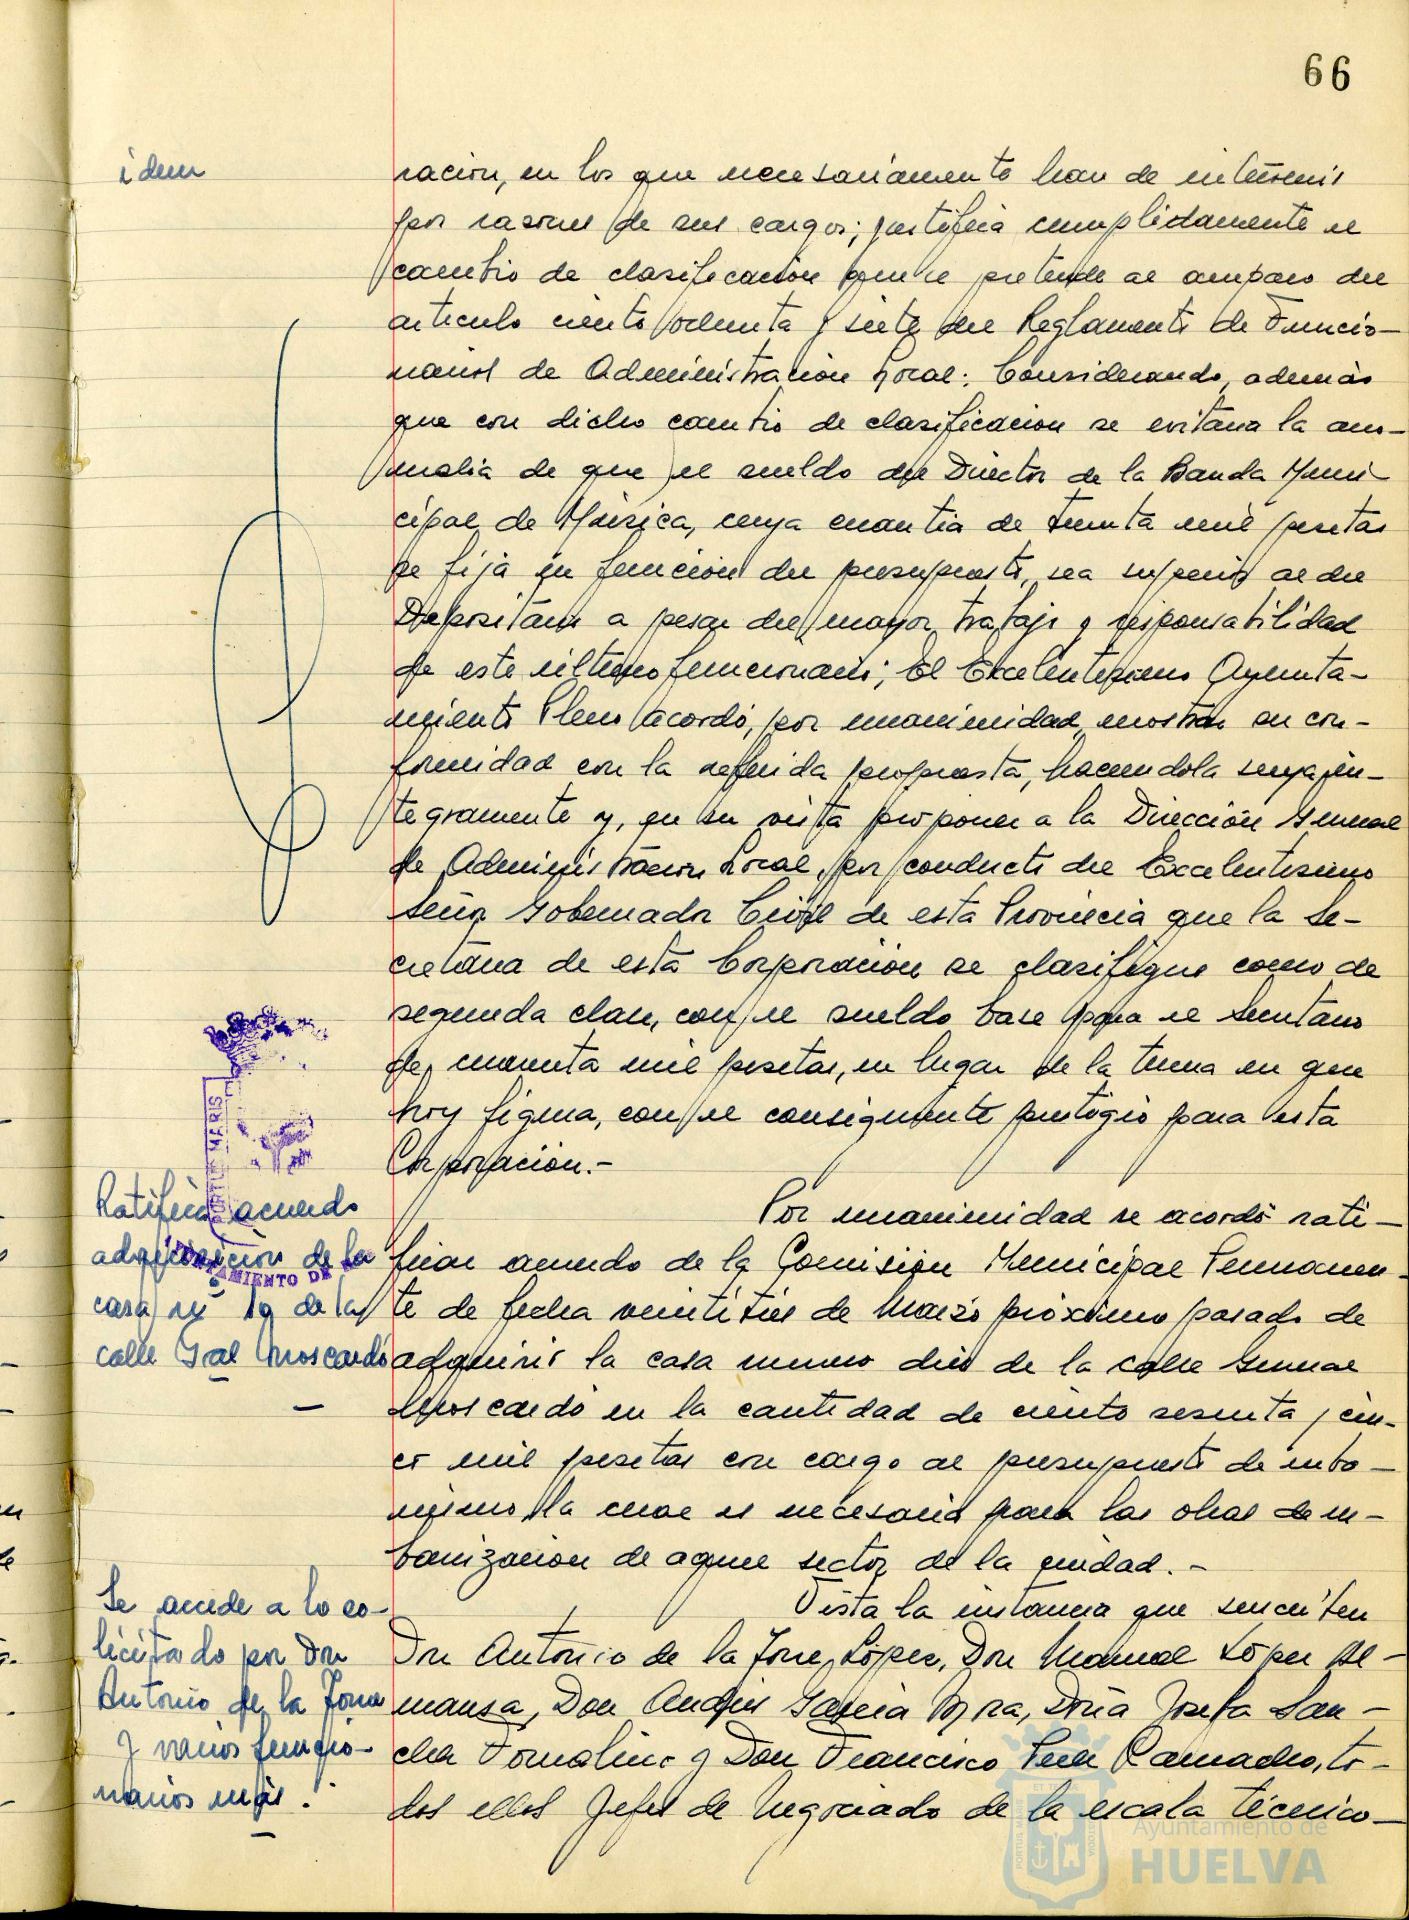 66
idem
ración, en los que necesariamente han de intervenir
por razones de sus cargos; justifica cumplidamente el
cambio de clasificación que se pretende al amparo del
artículo ciento ochenta y siete del Reglamento de Funcio-
narios de Administración Local: Considerando, además
que con dicho cambio de clasificación se evitaría la ano-
malía de que el sueldo del Director de la Banda Muni-
cipal de Música, cuya cuantía de treinta mil pesetas
se fija en función del presupuesto, sea superior al del
Depositario a pesar del mayor trabajo y responsabilidad
de este último funcionario; El Excelentísimo Ayunta-
miento Pleno acordó, por unanimidad, mostrar su con-
formidad con la referida propuesta, haciéndola suya ín-
tegramente y, en su vista proponer a la Dirección General
de Administración Local, por conducto del Excelentísimo
Señor Gobernador Civil de esta Provincia que la Se-
cretaría de esta Corporación se clasifique como de
segunda clase, con el sueldo base para el Secretario
de cuarenta mil pesetas, en lugar de la tercera en que
hoy figura, con el consiguiente prestigio para esta
Corporación.-
PORTUS MARIS
AYUNTAMIENTO DE
Ratifica acuerdo
adquisición de la
casa nº 10 de la
calle Gral Moscardó
Por unanimidad se acordó rati-
ficar acuerdo de la Comisión Municipal Permanen-
te de fecha veintitrés de Marzo próximo pasado de
adquirir la casa número diez de la calle General
Moscardó en la cantidad de ciento sesenta y cin-
co mil pesetas con cargo al presupuesto de urba-
nismo, la cual es necesaria para las obras de ur-
banización de aquel sector de la ciudad.-
Se accede a lo so-
licitado por Don
Antonio de la Torre
y varios funcio-
narios más.
Vista la instancia que suscriben
Don Antonio de la Torre López, Don Manuel López Al-
mansa, Don Andrés García Mora, Doña Josefa San-
chez Tornalino y Don Francisco Pérez Camacho, to-
dos ellos Jefes de Negociado de la escala técnico-
Ayuntamiento de
HUELVA